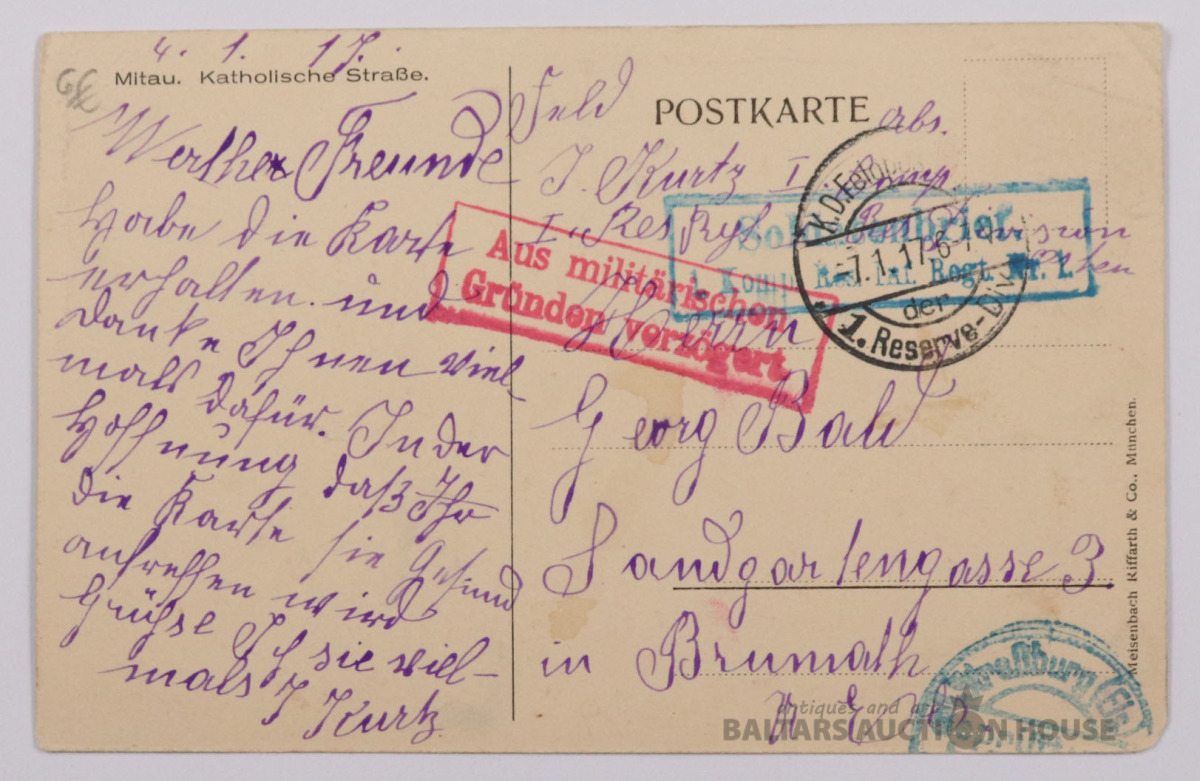 4. 1. 17.
Mitau. Katholische Straße.
Werther Freunde
Habe die Karte
erhalten und
danke Ihnen viel
mals dafür. In der
Hoffnung daß Ihr
die Karte sie Gesund
antreffen wird
Grühse Ich sie viel-
mals J Kurtz
Feld
POSTKARTE
Abs.
J. Kurtz I. Komp
I. Res Rgt
Osten
Soldatenbrief.
1. Komp. Res. Inf. Regt. Nr. 1.
Aus militärischen
Gründen verzögert
K.D. Feldpost
-7.1.17. 6-7
der
1. Reserve-Div.
Herrn
Georg Bald
Sandgartengasse 3.
in Brumath
Straßburg (Els.
Meisenbach Riffarth & Co., München.
antiques and art
BALTARS AUCTION HOUSE